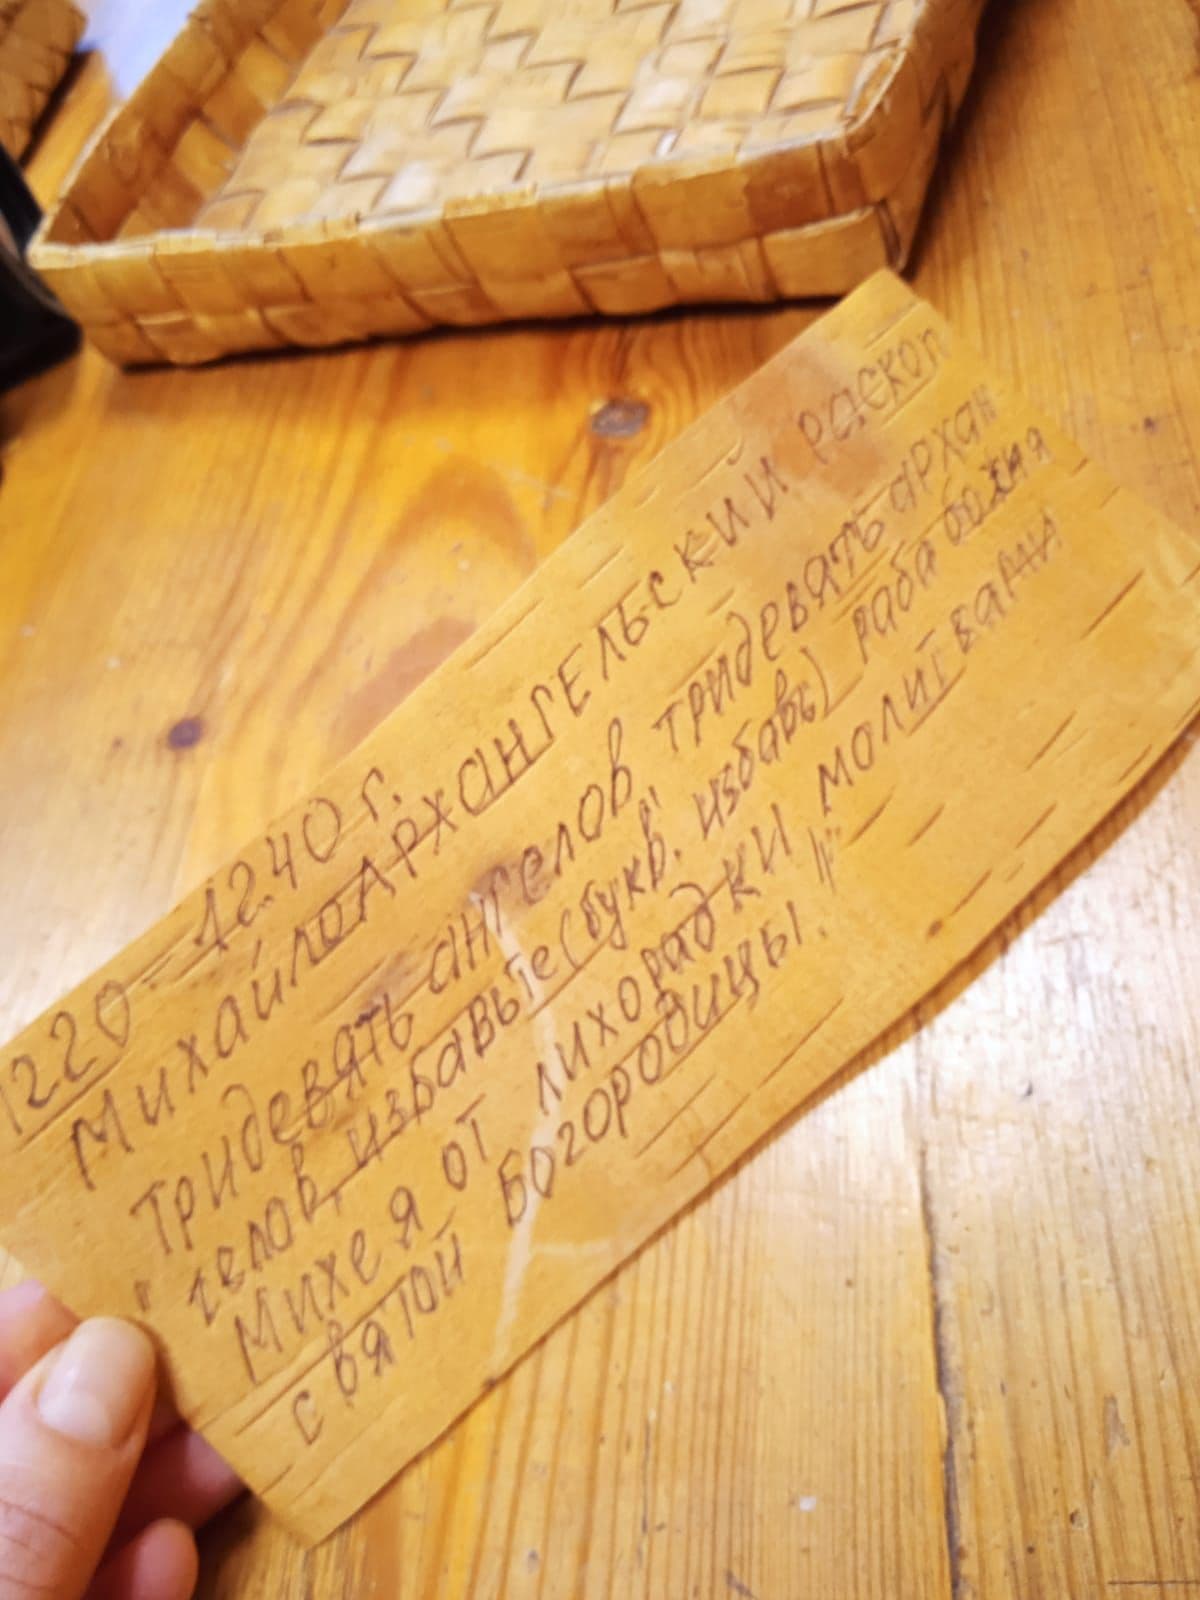 1220 - 1240 г.
МихайлоАрхангельский раскоп
"Тридевять ангелов, тридевять архан
гелов, избавьте (букв. "избавь) раба божия
Михея от лихорадки молитвами
святой Богородицы. "